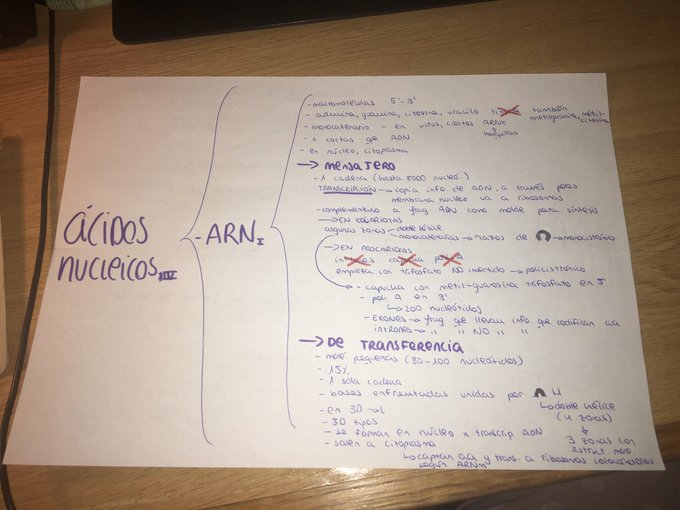 ÁCIDOS
NUCLEICOS IV
- ARN I
- macromoléculas 5'-3'
- adenina, guanina, citosina, uracilo también metilguanina, metil-citosina
- monocatenario - en virus, ciertos ARNt
horquillas
- + cortas qe ADN
- en núcleo, citoplasma
→ MENSAJERO
- 1 cadena (hasta 5000 nucleó.)
TRANSCRIPCIÓN → copia info. de ADN, a través poros
membrana nuclear va a ribosomas
- complementario a frag. ADN como molde para síntesis
→ EN EUCARIOTAS
algunas zonas - doble hélice
monocatenarias → lazos de → monocistrónico
→ EN PROCARIOTAS
intrones caperuza poli A
empieza con trifosfato NO invertido → policistrónico
- capucha con metil-guanosina trifosfato en 5'
- poli A en 3'
↳ 200 nucleótidos
- EXONES → frag qe llevan info. qe codifican aa
INTRONES → " " NO " "
→ DE TRANSFERENCIA
- moléc. pequeñas (80-100 nucleótidos)
- 15%
- 1 sola cadena
- bases enfrentadas unidas por H
↳ doble hélice
(4 zonas)
- en 3D → L
- 50 tipos
3 zonas con
estruct mono
- se forman en núcleo x transcrip. ADN
- salen a citoplasma
↳ captan aa y trans. a ribosomas colocándolos
según ARNm